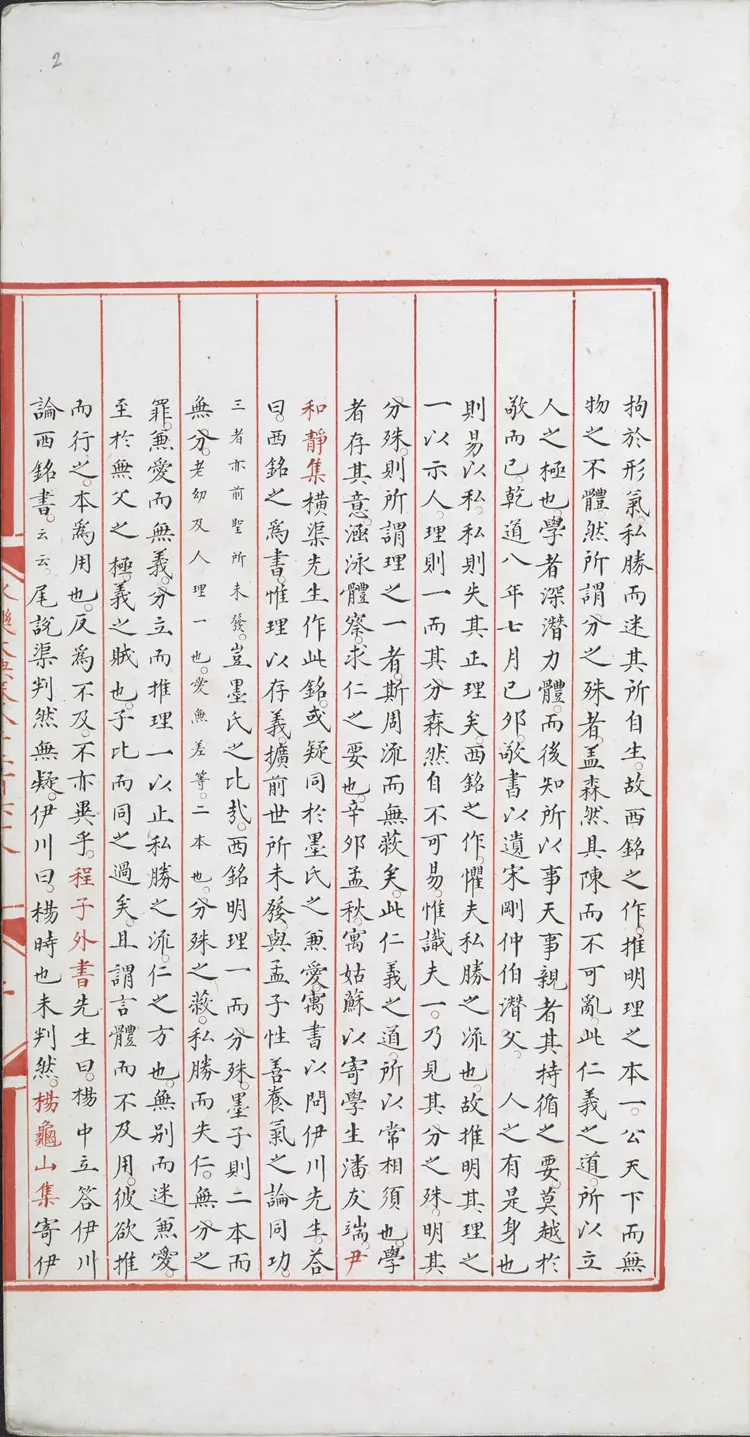 2
拘於形氣。私勝而迷其所自生。故西銘之作。推明理之本一。公天下而無
物之不體。然所謂分之殊者。盖森然具陳而不可亂。此仁義之道。所以立
人之極也。學者深潛力體。而後知所以事天事親者。其持循之要。莫越於
敬而已。乾道八年七月己夘。敬書以遺宋剛仲伯潛父。 人之有是身也
則易以私。私則失其正理矣。西銘之作。懼夫私勝之流也。故推明其理之
一以示人。理則一而其分森然。自不可易。惟識夫一。乃見其分之殊。明其
分殊。則所謂理之一者。斯周流而無蔽矣。此仁義之道。所以常相須也。學
者存其意。涵泳體察。求仁之要也。辛夘孟秋。寓姑蘇以寄學生潘友端。尹
和靜集橫渠先生作此銘。或疑同於墨氏之兼愛。寓書以問伊川先生。荅
曰。西銘之爲書。惟理以存義。擴前世所未發。與孟子性善養氣之論同功。
三者亦前聖所未發。豈墨氏之比㢤。西銘明理一而分殊。墨子則二本而
無分。老幼及人理一也。愛無差等。二本也。分殊之蔽。私勝而失仁。無分之
罪。兼愛而無義。分立而推理一。以止私勝之流。仁之方也。無别而迷兼愛。
至於無父之極。義之賊也。子比而同之過矣。且謂言體而不及用。彼欲推
而行之。本爲用也。反爲不及。不亦異乎。程子外書先生曰。楊中立答伊川
論西銘書。云云。尾說渠判然無疑。伊川曰。楊時也未判然。楊龜山集寄伊
永樂大典卷八千